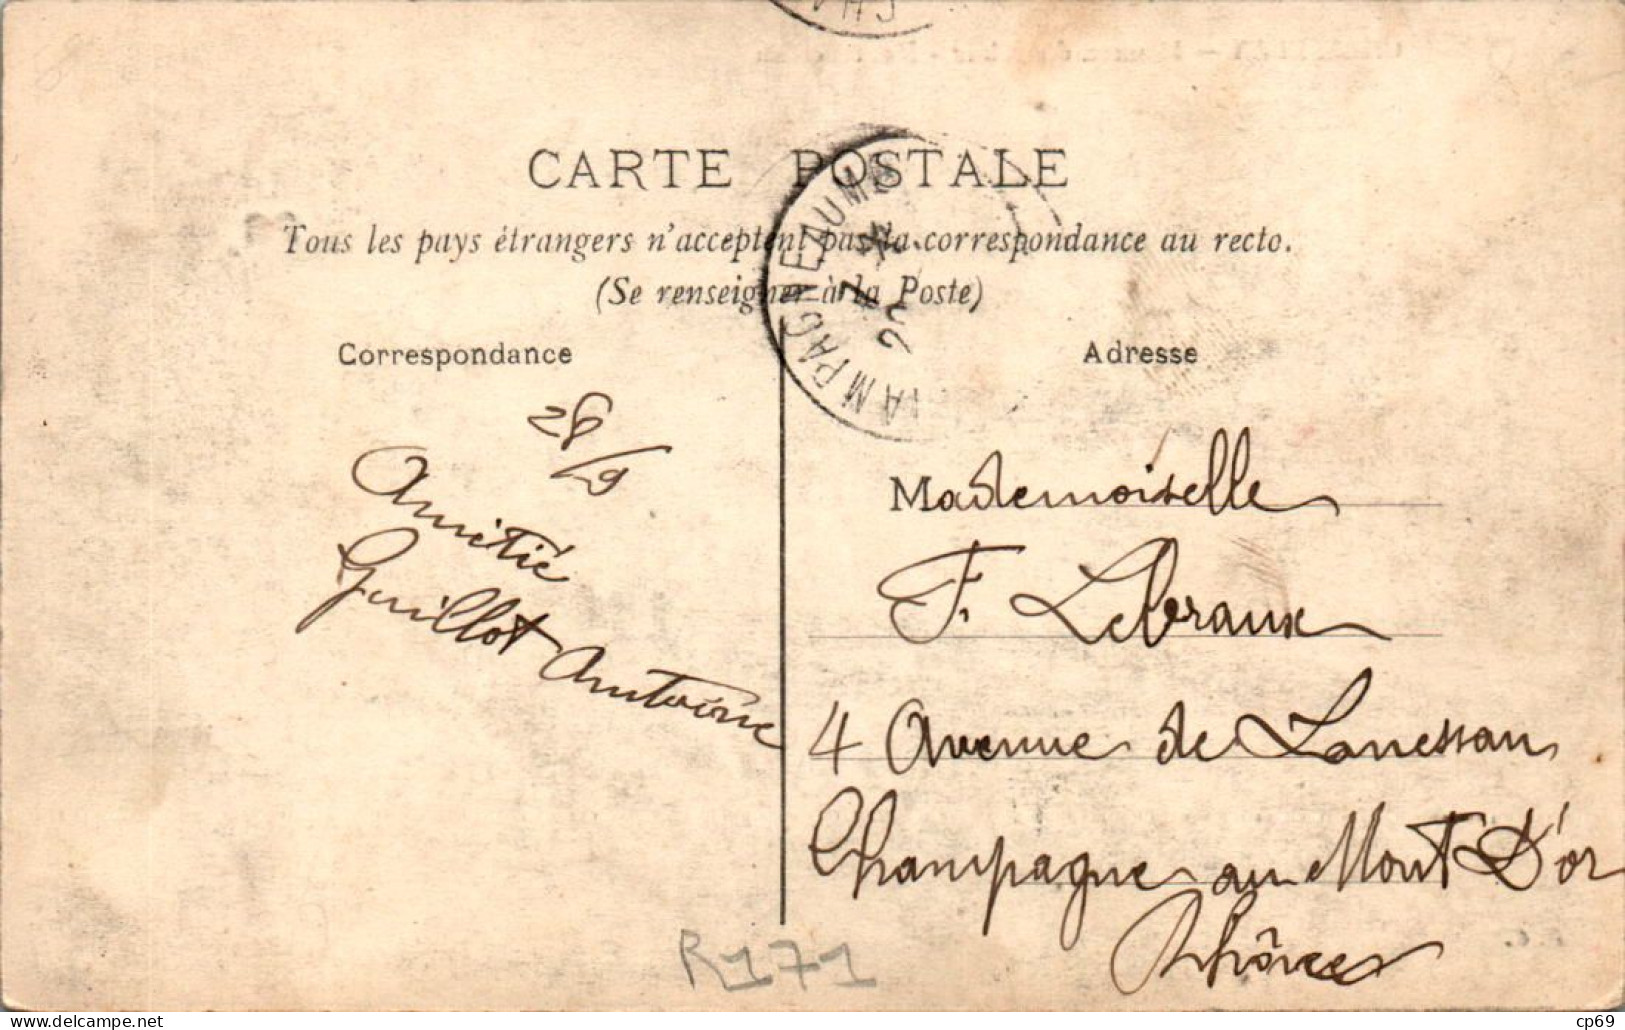 CARTE POSTALE
Tous les pays étrangers n'acceptent pas la correspondance au recto.
(Se renseigner à la Poste)
Correspondance
Adresse
AMPAGNEAUM
28/9
Amitié
Guillot Antoine
Mademoiselle
F. Lebraux
4 Avenue de Lanessan
Champagne au Mont D'or
Rhône
R171
delcampe.net
cp69